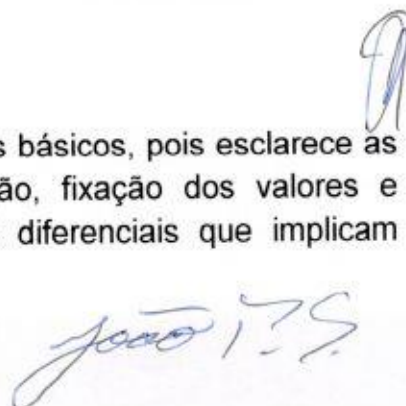 s básicos, pois esclarece as
ão, fixação dos valores e
diferenciais que implicam
João P. S.